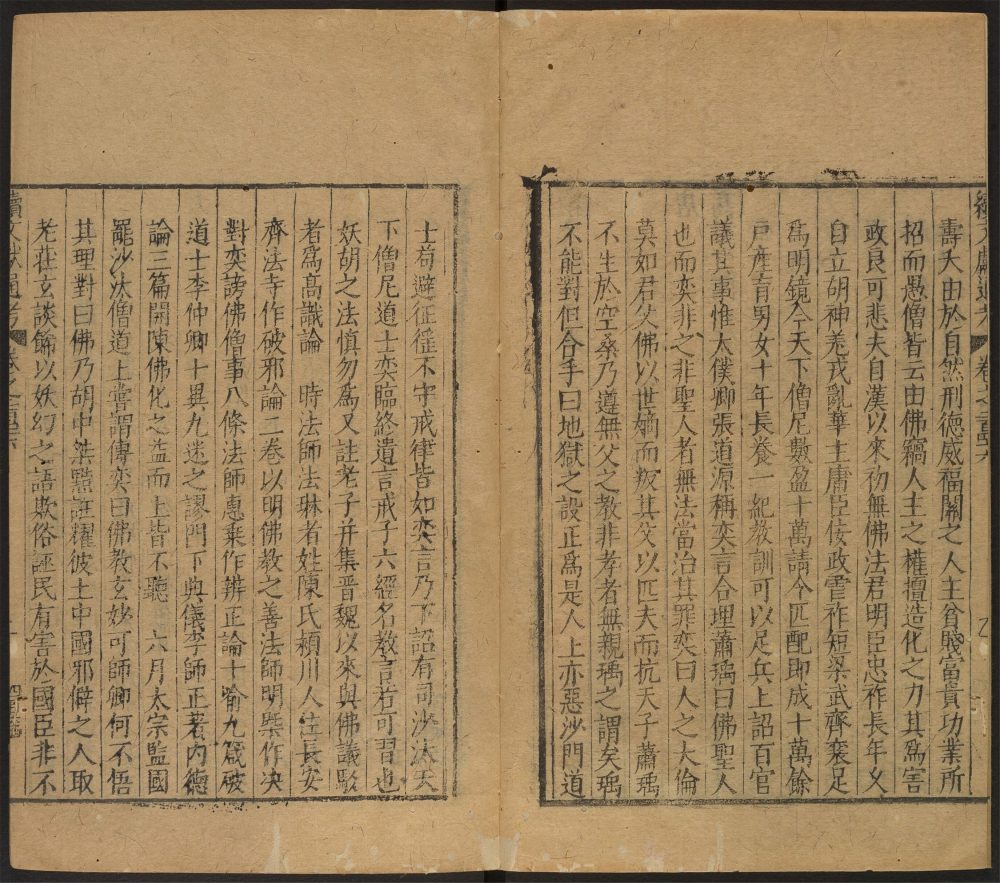 續文獻通考 卷之二百四十六
壽夭由於自然刑德威福關之人主貧賤富貴功業所
招而愚僧皆云由佛竊人主之權擅造化之力其爲害
政良可悲夫自漢以來初無佛法君明臣忠祚長年乆
自立胡神羗戎亂華主庸臣佞政霍祚短梁武齊襄足
爲明鏡今天下僧尼數盈十萬請令匹配即成十萬餘
戸產育男女十年長養一紀教訓可以足兵上詔百官
議其事惟太僕卿張道源稱奕言合理蕭瑀曰佛聖人
也而奕非之非聖人者無法當治其罪奕曰人之大倫
莫如君父佛以世嫡而叛其父以匹夫而抗天子蕭瑀
不生於空桑乃遵無父之教非孝者無親瑀之謂矣瑀
不能對但合手曰地獄之設正爲是人上亦惡沙門道
士苟避征徭不守戒律皆如奕言乃下詔有司沙汰天
下僧尼道士奕臨終遺言戒子六經名教言若可習也
妖胡之法慎勿爲又註老子并集晉魏以來與佛議駁
者爲高識論 時法師法琳者姓陳氏頴川人注長安
齊法寺作破邪論二卷以明佛教之善法師明槩作决
對奕謗佛僧事八條法師惠乗作辨正論十喻九箴破
道士李仲卿十異九迷之謬門下典儀李師正著内德
論三篇開陳佛化之益而上皆不聽 六月太宗監國
罷沙汰僧道上嘗謂傳奕曰佛教玄妙可師卿何不悟
其理對曰佛乃胡中桀黠誑耀彼土中國邪僻之人取
老莊玄談飾以妖幻之語欺俗誣民有害於國臣非不
續文獻通考